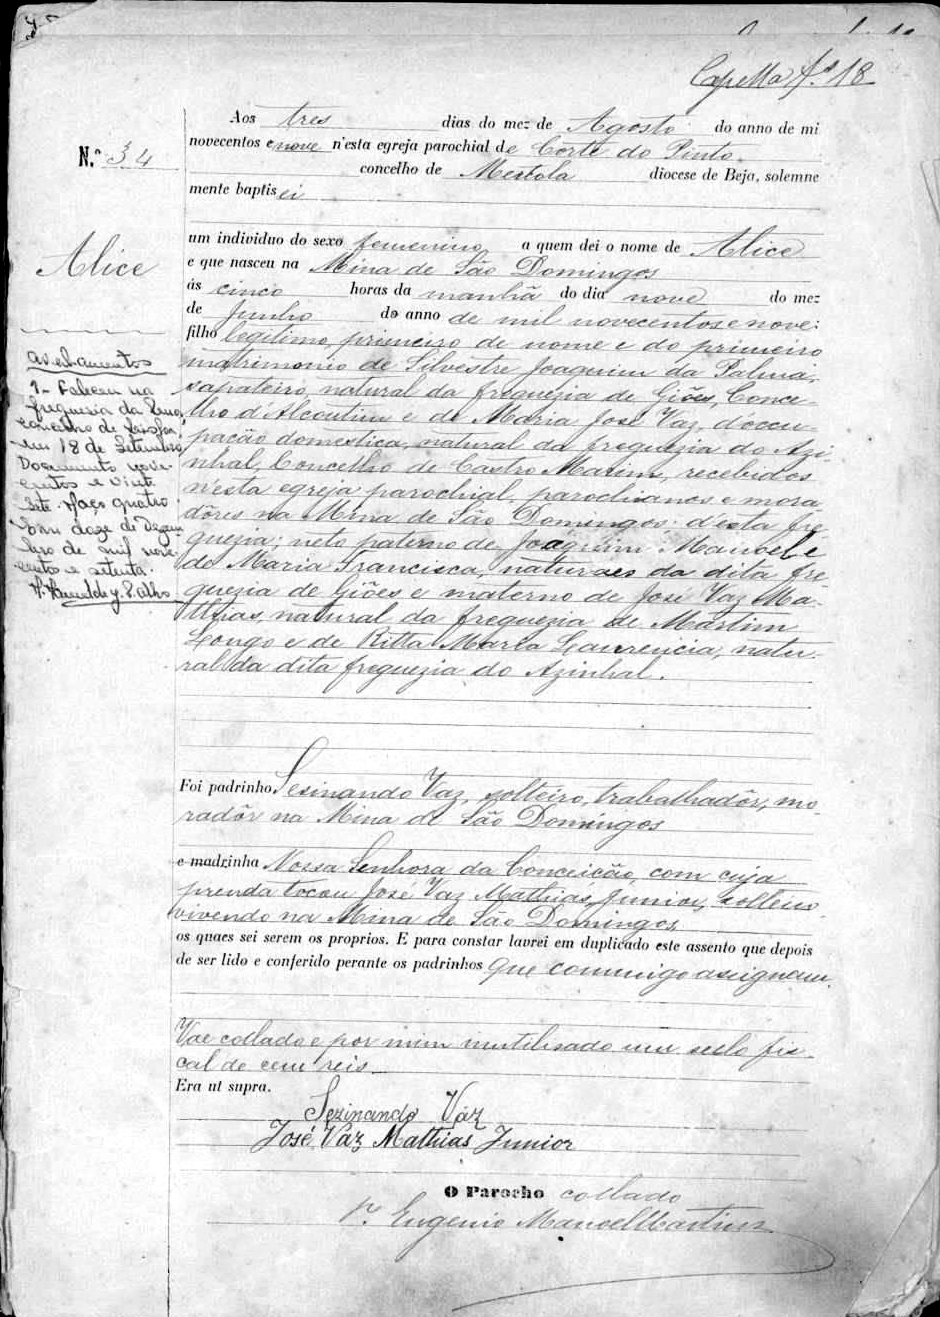 Capella f.º 18
N.º 34
Alice
Aos tres dias do mez de Agosto do anno de mi
novecentos e nove n'esta egreja parochial de Corte do Pinto
concelho de Mertola diocese de Beja, solemne
mente baptisei
um individuo do sexo femenino a quem dei o nome de Alice
e que nasceu na Mina de São Domingos
ás cinco horas da manhã do dia nove do mez
de Junho do anno de mil novecentos e nove:
filho legitimo, primeiro de nome e do primeiro
matrimonio de Silvestre Joaquim da Palma,
sapateiro, natural da freguezia de Giões, Conce-
lho d'Alcoutim e de Maria José Vaz, d'occu-
pação domestica, natural da freguezia do Azi-
nhal, Concelho de Castro Marim, recebidos
n'esta egreja parochial, parochianos e mora
dôres na Mina de São Domingos: d'esta fre
guezia; neto paterno de Joaquim Manoel e
de Maria Francisca, naturaes da dita fre
guezia de Giões e materno de José Vaz Ma-
thias, natural da freguezia de Martim
Longo e de Ritta Maria Laurencia, natu-
ral da dita freguezia do Azinhal.
Averbamentos
1- Faleceu na
freguezia da
concelho de Lisboa,
em 18 de Setembro
Documento nove-
centos e vinte
sete. Maço quatro
Em doze de Dezem
bro de mil nove-
centos e setenta.
Foi padrinho Sesinando Vaz, solteiro, trabalhadôr, mo-
radôr na Mina de São Domingos
e madrinha Nossa Senhora da Conceição, com cuja
prenda tocou José Vaz Mathias, Junior, solteiro,
vivendo na Mina de São Domingos,
os quaes sei serem os proprios. E para constar lavrei em duplicado este assento que depois
de ser lido e conferido perante os padrinhos que commigo assignam.
Vae collado e por mim inutilisado um sello fis-
cal de cem reis
Era ut supra.
Sezinando Vaz
José Vaz Mathias Junior
O Parocho collado
P. Eugenio Manoel Martins